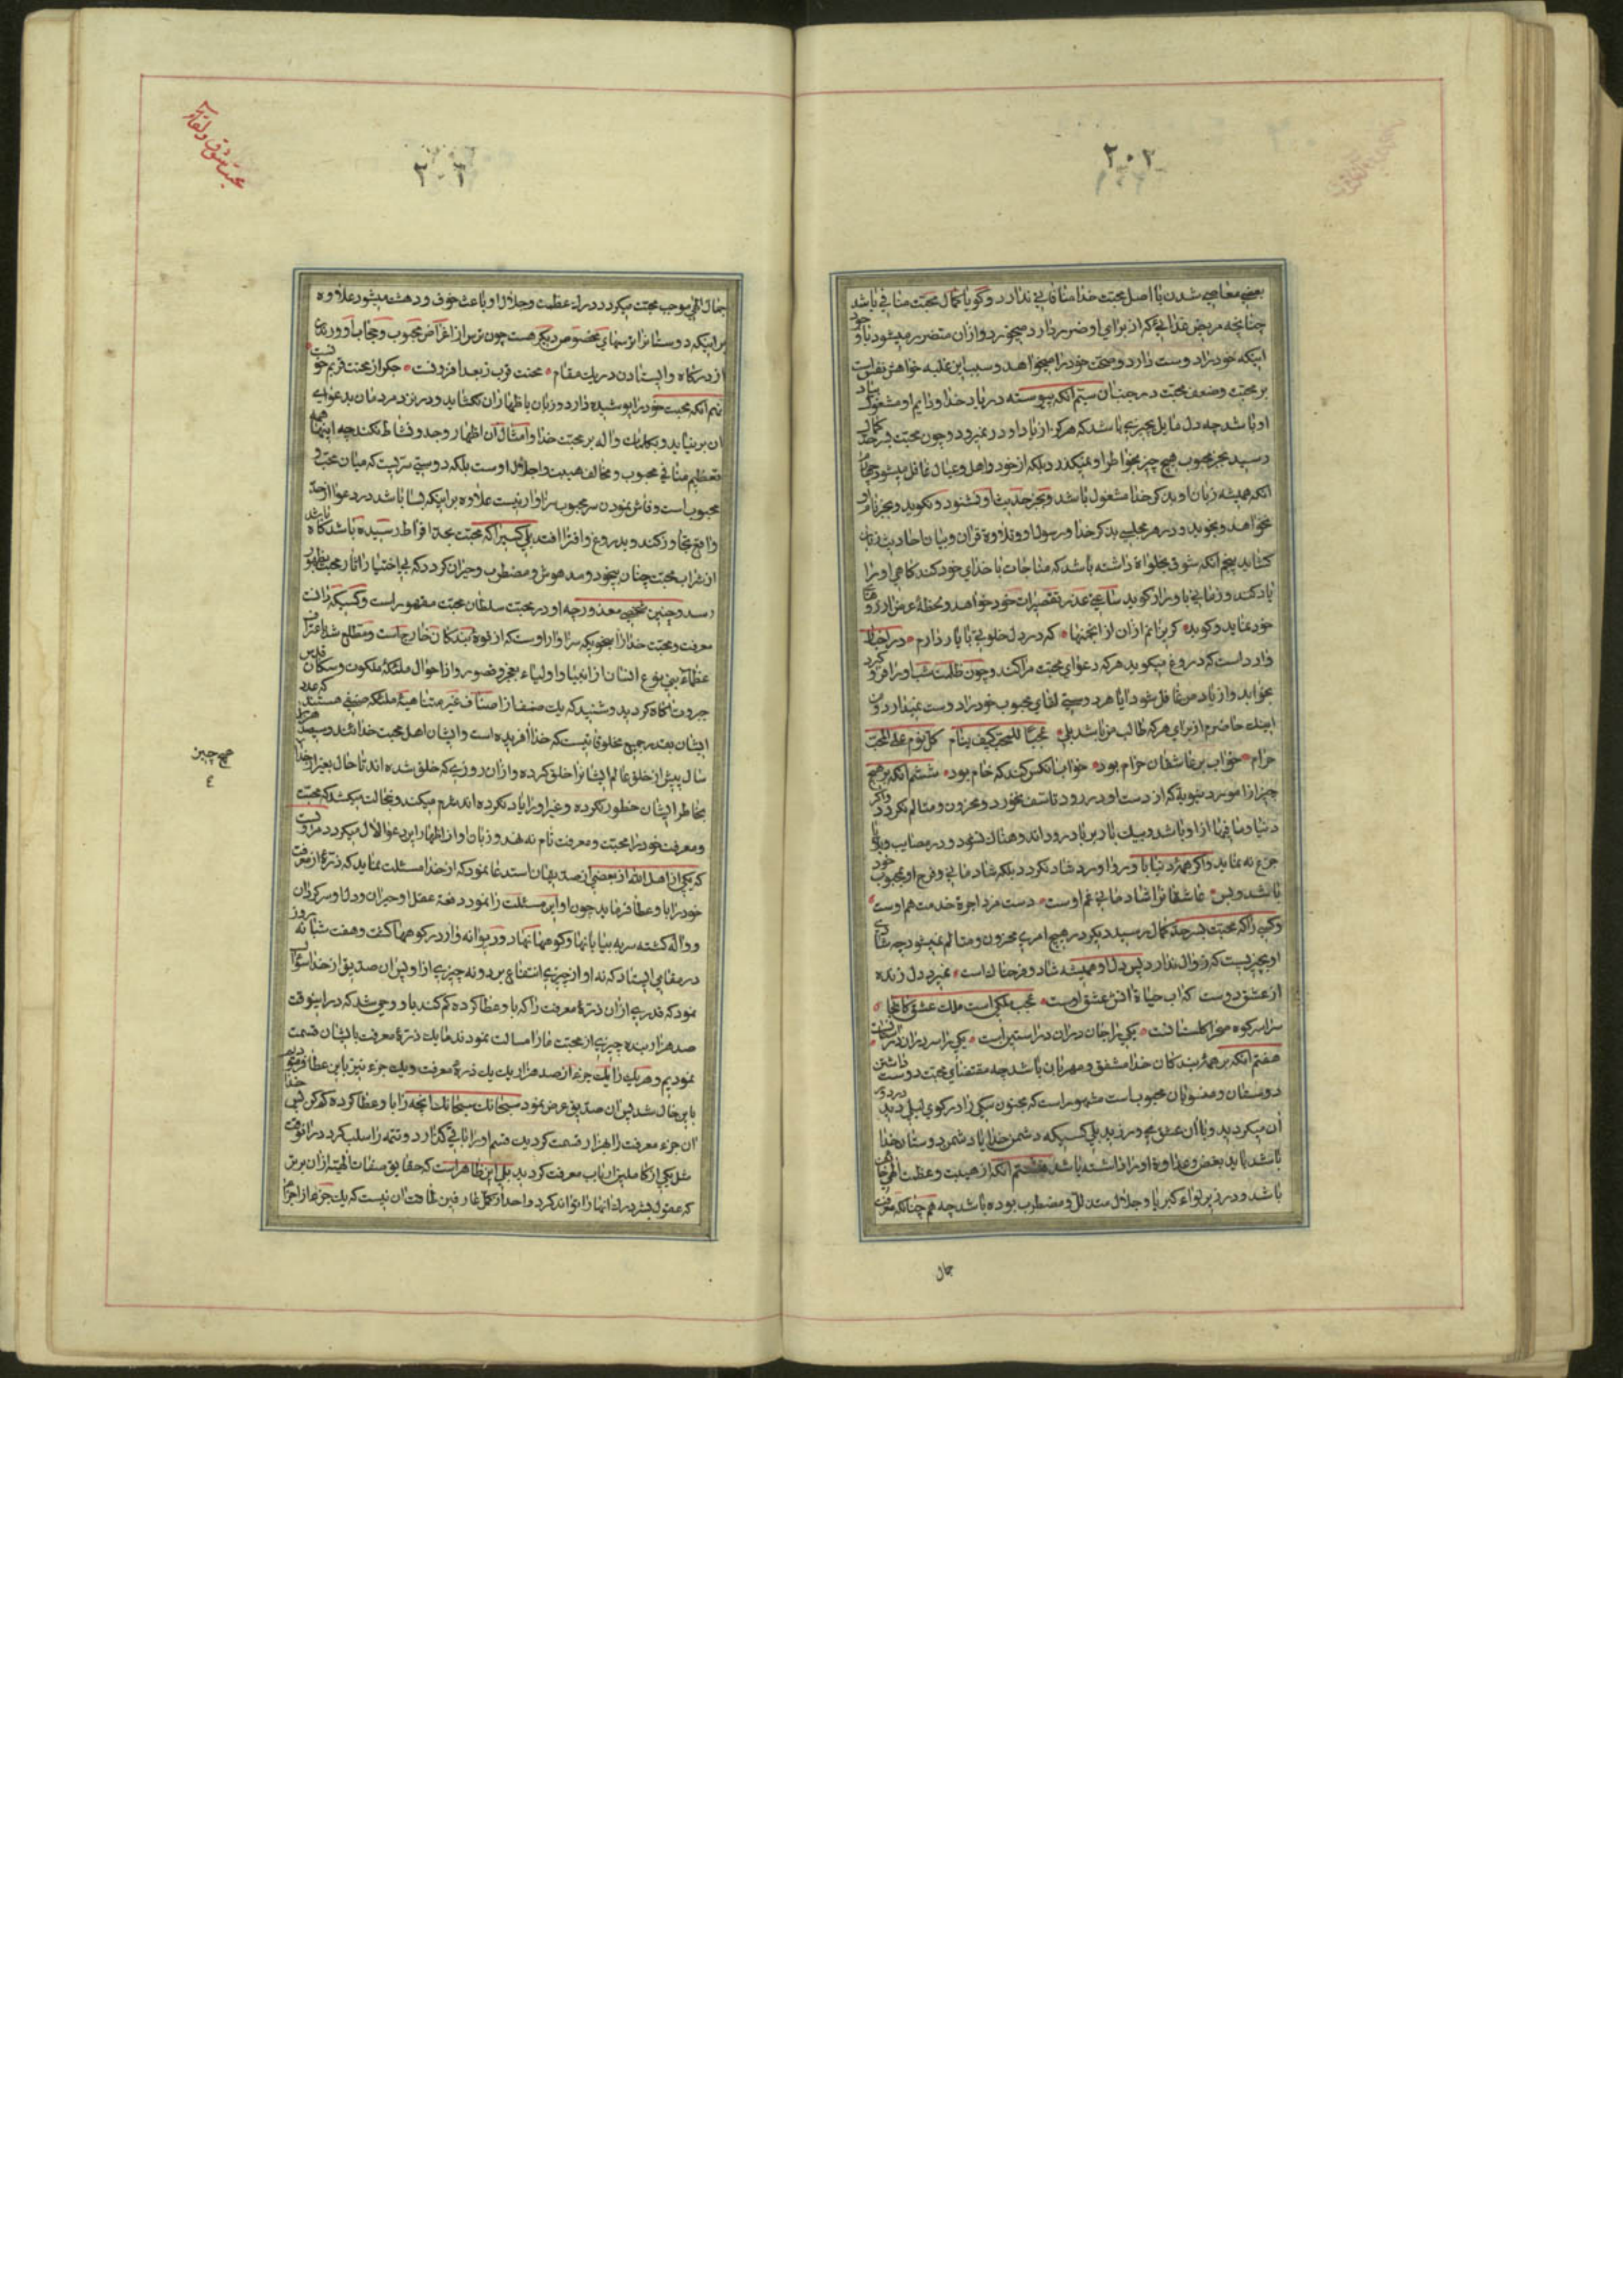 ۲۰۲
بعضی معاصی شدن با اصل محبت خدا منافاتی ندارد و گو با کمال محبت منافی باشد
چنانچه مریض غذائی که از برای او ضرر دارد میخورد و از آن متضرر میشود با وجود
اینکه خود را دوست دارد و صحت خود را میخواهد و سبب این غلبه خواهش نفس است
بر محبت وضعف محبت در جنبان سیّم آنکه پیوسته در یاد خدا و دایم او مشغول بیاد
او باشد چه دل مایل بچیزی باشد که هرگز از یاد او در نمیرود و چون محبت بسرحد کمال
رسید بجز محبوب هیچ چیز بخاطر او نمیگذرد بلکه از خود و اهل و عیال غافل میشود
آنکه همیشه زبان او بذکر خدا مشغول باشد و بجز حدیث او نشنود و نگوید و بجز نام او
نخواهد و نجوید و در هر مجلسی بذکر خدا و رسول او و تلاوة قرآن و بیان احادیث زبان
گشاید پنجم آنکه شوق بخلواة داشته باشد که مناجات با خدای خود کند گاهی او را
یاد کند و زمانی با او راز گوید ساعتی عذر تقصیرات خود خواهد و لحظهٔ عرض آرزو
خود نماید و گوید گریزانم ازان از انجمنها که در دل خلوتی با یار دارم در اخبار
وارد است که دروغ میگوید هر که دعوای محبت مرا کند و چون ظلمت شب او را فرو گیرد
بخوابد و از یاد من غافل شود آیا هر دوستی لقای محبوب خود را دوست نمیدارد و من
اینک حاضرم از برای هر که طالب من باشد بلی عجباً للمحب کیف ینام کل نوم علی المحب
حرام خواب بر عاشقان حرام بود خواب آنکس کند که خام بود ششم آنکه بر هیچ
چیز از امور دنیویه که از دست او در رود تاسف نخورد و محزون و متالم نگردد و اگر
دنیا و مافیها از او باشد و بیک بار بر باد رود اندوهناک نشود و در مصایب و بلایا
جزع نه نماید و اگر همهٔ دنیا باو رو آورد شاد نگردد بلکه شادمانی و فرح او بمحبوب خود
باشد و بس عاشقانرا شادمانی غم اوست دست مزد اجرة خدمت هم اوست
و کسی را که محبت بسرحد کمال رسید دیگر در هیچ امری محزون و متالم نمیشود چه شادی
او بچیزیست که زوال ندارد پس دل او همیشه شاد و فرحناک است نمیرد دل زنده
از عشق دوست که آب حیاة آتش عشق اوست عجب ملکی است ملک عشق کانجا
سراسر کوه صحرا گلستانست یکی را جان دران در آستین است یکی را سر دران
هفتم آنکه بر همهٔ بندگان خدا مشفق و مهربان باشد چه مقتضای محبت دوست داشتن
دوستان و منسوبان محبوب است مشهور است که مجنون سگی را در کوی لیلی دید
آن میگردید و با آن عشق میورزید بلی کسیکه دشمن خدا یا دشمن دوستان خدا
باشد باید بغض و عداوة او را داشته باشد هشتم آنکه از هیبت و عظمت الهی خائف
باشد و در زیر لوای کبریا و جلال متذلل و مضطرب بوده باشد چه هم چنانکه معرفت
جمال
محبت شوق و لقاء
۲۰۳
جمال الهی موجب محبت میگردد درک عظمت و جلال او باعث خوف و دهشت میشود علاوه
بر اینکه دوستانرا ترسهای مخصوص دیگر هست چون ترس از اغراض محبوب و حجاب او و راندن
از درگاه و ایستادن در یک مقام محنت قرب ز بعد افزونست جگر از محنت قربم خونست
نهم آنکه محبت خود را پوشیده دارد و زبان باظهار آن نگشاید و در نزد مردمان بدعوای
آن بر نیاید و بکلمات داله بر محبت خدا و امثال آن اظهار وجد و نشاط نکند چه اینها همه
تعظیم منافی محبوب و مخالف هیبت و اجلال اوست بلکه دوستی سرّیست که میان محب و
محبوبست و فاش نمودن سر محبوب سزاوار نیست علاوه بر اینکه بسا باشد در دعوا از حد
واقع تجاوز کند و بدروغ و افترا افتد بلی کسیرا که محبت بحد افراط رسیده باشد گاه باشد
از شراب محبت چنان بیخود و مدهوش و مضطرب و حیران گردد که بی اختیار آثار محبت بظهور
رسد و چنین شخصی معذور چه او در محبت سلطان محبت مقهور است و کسیکه دانست
معرفت و محبت خدا از آنحویکه سزاوار اوست که از قوة بندگان خارج است و مطلع شد باعتراف
عظماء بنی نوع انسان از انبیا و اولیاء بعجز و قصور و از احوال ملئکه ملکوت و سکان قدس
جبروت آگاه گردید و شنید که یک صنف از اصناف غیر متناهیهٔ ملئکه صنفی هستند که عدد
ایشان بقدر جمیع مخلوقاتیست که خدا آفریده است و ایشان اهل محبت خدائند و سیصد هزار
سال پیش از خلق عالم ایشانرا خلق کرده و از آن روزی که خلق شده اند تا حال بغیر از خدا
بخاطر ایشان خطور نکرده و غیر او را یاد نکرده اند شرم میکند و خجالت میکشد که محبت
و معرفت خود را محبت و معرفت نام نهد و زبان او از اظهار این دعوا لال میگردد
که یکی از اهل الله از بعضی از صدیقان استدعا نمود که از خدا مسئلت نماید که ذرهٔ از معرفت
خود را باو عطا فرماید چون او این مسئلت را نمود دفعة عقل او حیران و دل او سرگردان
و واله گشته سر به بیابانها و کوهها نهاد و دیوانه وار در کوهها گشت و هفت شبانه روز
در مقامی ایستاد که نه او از چیزی انتفاع برد و نه چیزی از او پس آن صدیق از خدا سؤال
نمود که قدری از آن ذرهٔ معرفت را که باو عطا کرده کم کند باو وحی شد که در اینوقت
صد هزار بنده چیزی از محبت ما را مسالت نمودند ما یک ذرهٔ معرفت بایشان قسمت
نمودیم و هر یک را یک جزء از صد هزار یک یک ذرهٔ معرفت و یک جزء نیز باین عطا فرمودیم
باین حال شد پس آن صدیق عرض نمود سبحانک سبحانک آنچه را باو عطا کرده کم کن پس خدا
آن جزء معرفت را بهزار قسمت کردید قسم او را باقی گذارد و تتمه را سلب کرد در آنوقت
مثل یکی از کاملین ارباب معرفت گردید بلی این ظاهر است که حقایق صفات الهیه از آن برتر
که عقول بشر درک آنها را تواند کرد و احدی از کمل عارفین طاقت آن نیست که یک جزء از اجزاء
هیچ چیز
٤